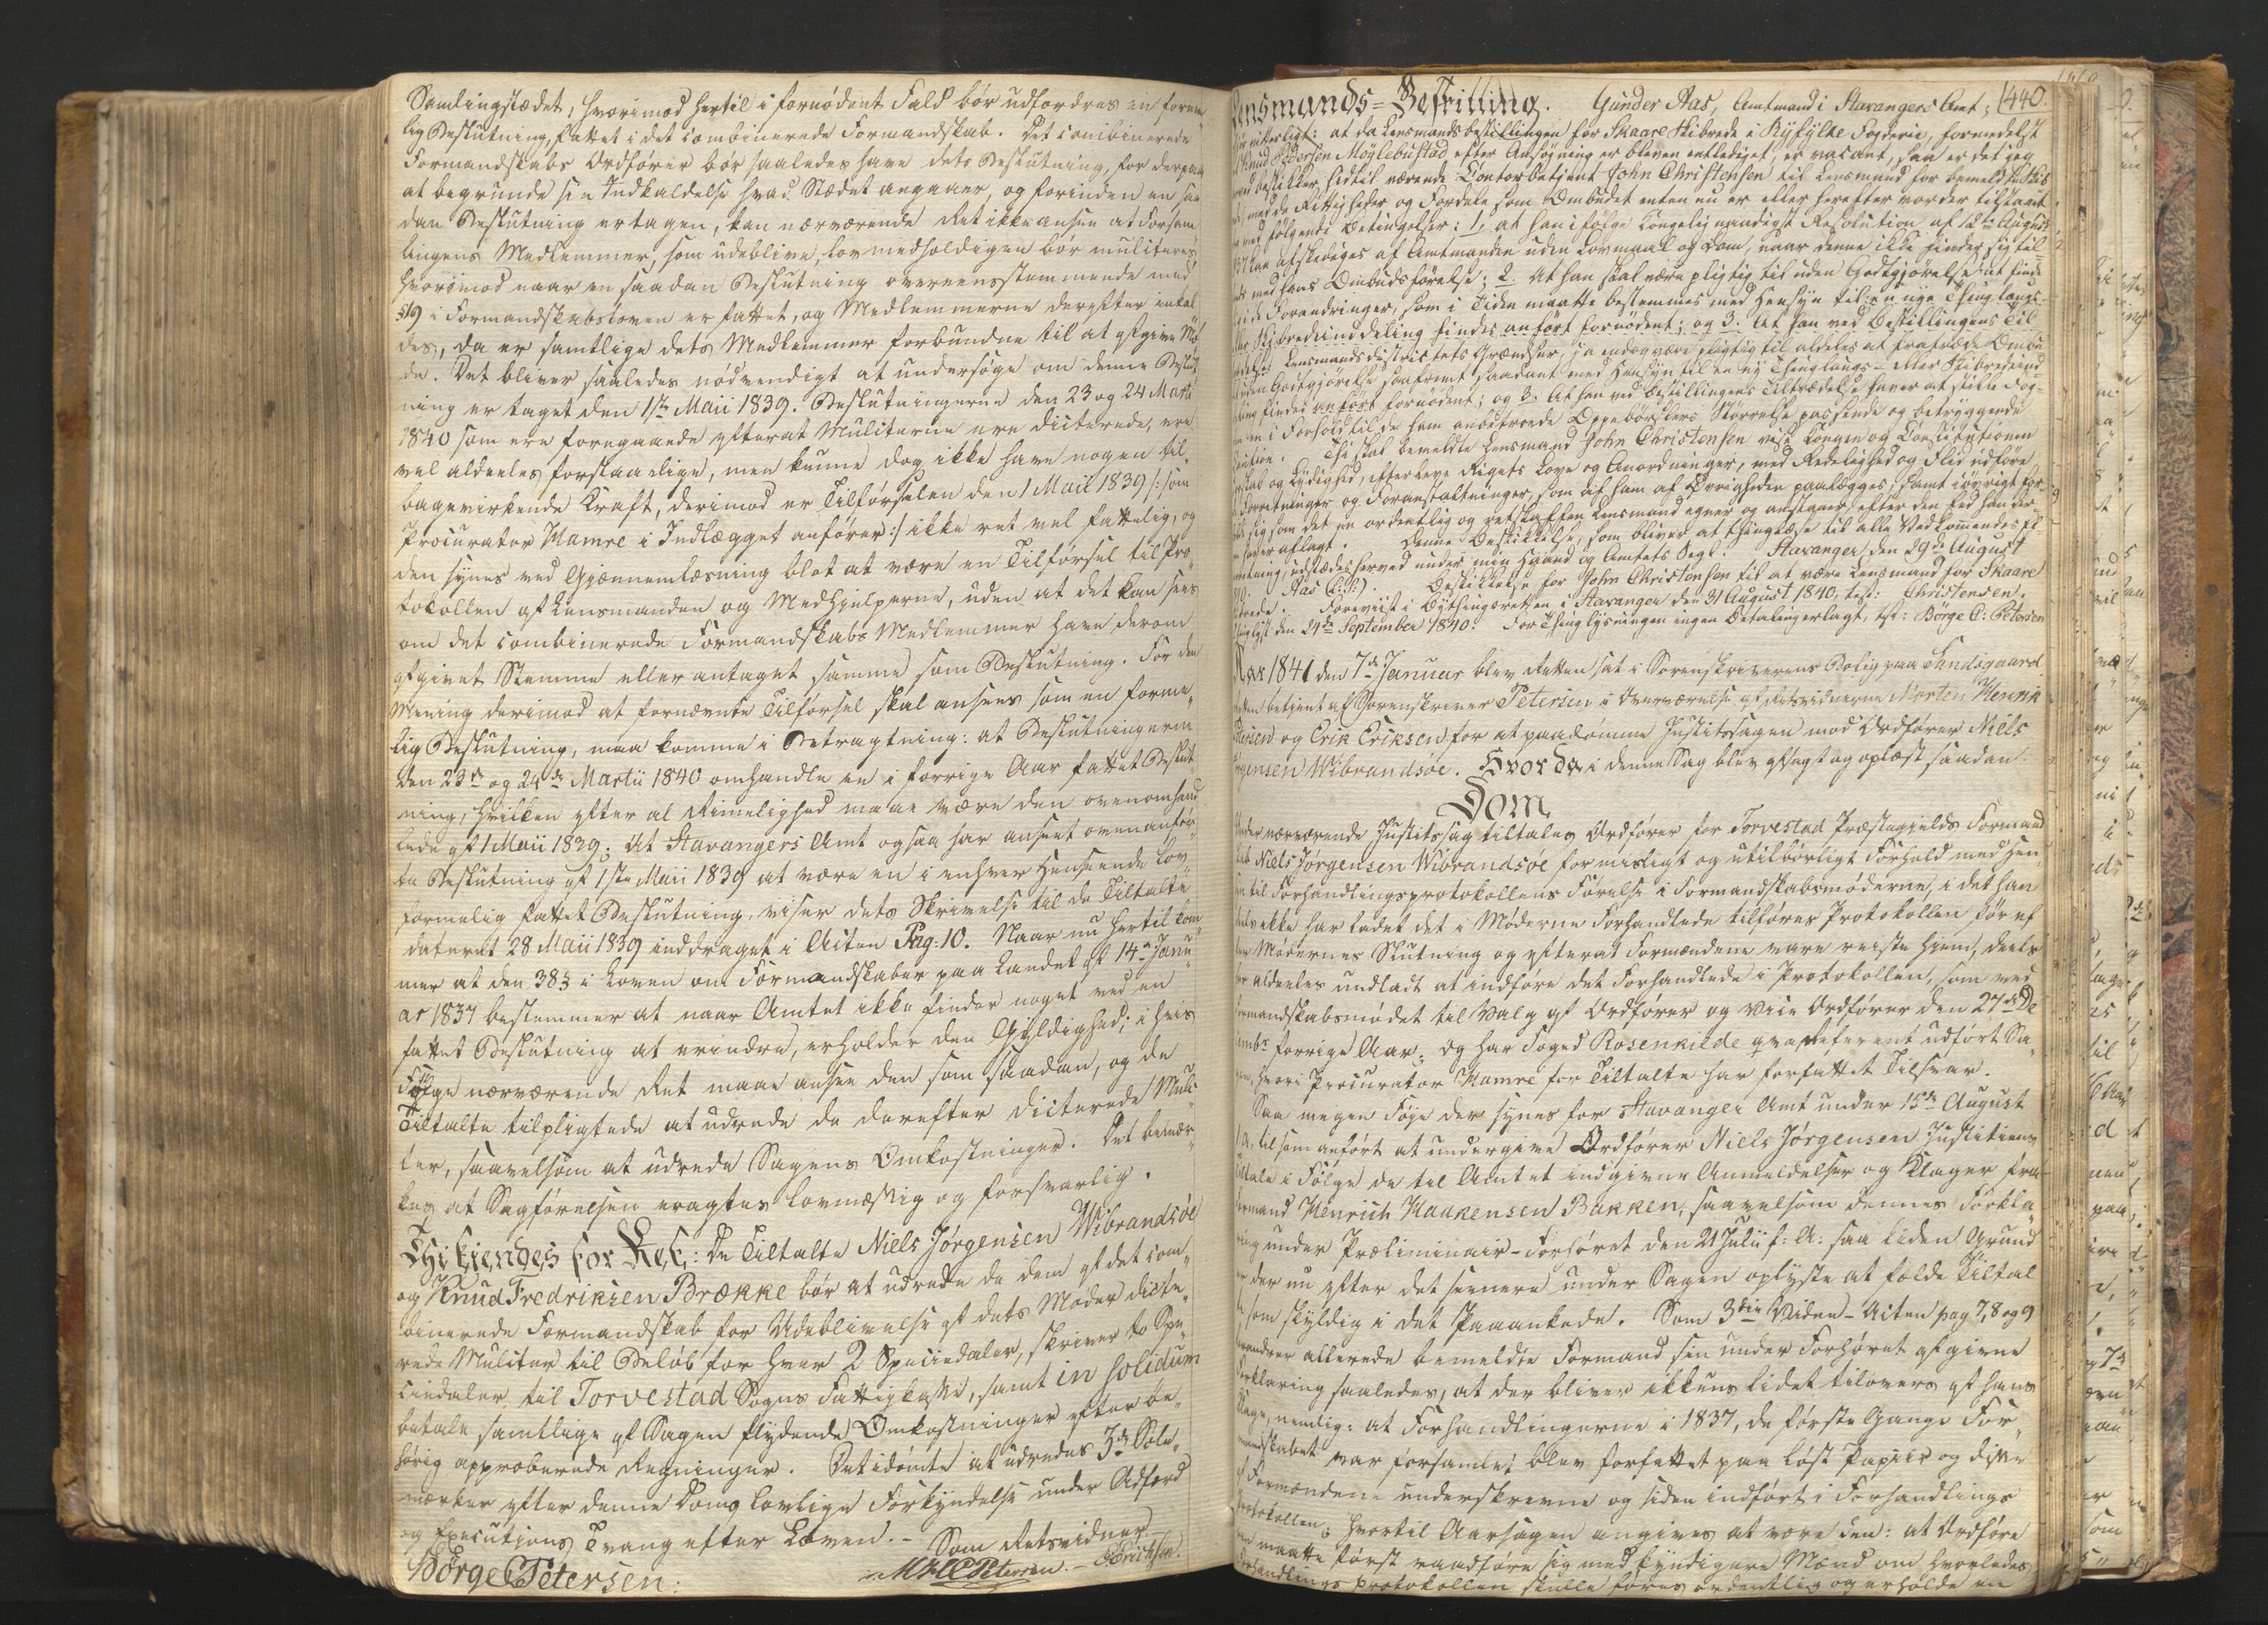 Samlingstædet, hvorimod hertil i fornødent Fald bør udfordres en formelig
lig Beslutning, fattet i det combinerede Formandskab. Det combinerede
Formandskabs Ordfører bør saaledes have dets Beslutning, for derpaa
at begrunde sin Indkaldelse hvad Stædet angaaer, og forinden en saa
dan Beslutning er tagen, kan nærværende Ret ikke ansee at Forsam
lingens Medlemmer, som udeblive, lovmedholdigen bør mulcteres
hvorimod naar en saadan Beslutning overeensstemmende med
§19 i Formandskabsloven er fattet, og Medlemmerne derefter indkal
des, da er samtlige dets Medlemmer forbundne til at afgive Mø
de. Det bliver saaledes nødvendigt at undersøge om denne Beslut
ning er taget den 1ste Maii 1839. Beslutningerne den 23 og 24 Marti
1840 som ere foregaaende efterat Mulcterne ere dicterede, ere
vel aldeeles forstaaelige, men kunne dog ikke have nogen til
bagevirkende Kraft, derimod er Tilførselen den 1 Maii 1839 /: som
Procurator Hamre i Indlægget anfører :/ ikke ret vel fattelig, og
den synes ved Gjennemlæsning blot at være en Tilførsel til Pro
tokollen af Lensmanden og Medhjelperne, uden at det kan sees
om det combinerede Formandskabs Medlemmer have derom
afgivet Stemme eller antaget samme som Beslutning. For den
Mening derimod at fornævnte Tilførsel skal ansees som en forme
lig Beslutning, maa komme i Betragtning: at Beslutningerne
den 23de og 24de Martii 1840 omhandle en i forrige Aar fattet Beslut
ning, hvilken efter al Rimelighed maae være den ovenomhand
lede af 1 Maii 1839; At Stavangers Amt ogsaa har anseet ovenanfør
te Beslutning af 1ste Maii 1839 at være en i enhver Henseende lov
formelig fattet Beslutning, viser dets Skrivelse til de Tiltalte
dateret 28 Maii 1839 inddraget i Acten Pag: 10. Naar nu hertil kom
mer at den 38 § i Loven om Formandskaber paa Landet af 14de Janu
ar 1837 bestemmer at naar Amtet ikke finder noget ved en
fattet Beslutning at erindre, erholder den Gyldighed; i hvis
Følge nærværende Ret maae ansee den som saadan, og de
Tiltalte tilpligtede at udrede de derefter dicterede Mulc
ter, saavelsom at udrede Sagens Omkostninger. Det bemær
kes at Sagførelsen eragtes lovmæssig og forsvarlig.
Thi kjendes for Ret: De Tiltalte Niels Jørgensen Wibrandsøe
og Knud Fredriksen Brække bør at udrede de dem af det com
binerede Formandskab for Udeblivelse af dets Møder dicte
rede Mulcter til Beløb for hver 2 Speciedaler, skriver to Spe
ciedaler, til Torvestad Sogns Fattigkasse, samt in solidum
betale samtlige af Sagen flydende Omkostninger efter be
hørig approberede Regninger. Det idømte at udredes 3de Sole
mærker efter denne Doms lovlige Forkyndelse under Adfærd
og Executions Tvang efter Loven. - Som Retsvidner
Børge C Petersen: M H C Petersen. - E Erichsen.
Lensmands=Bestilling. Gunder Aas, Amtmand i Stavangers Amt; 440.
vitterligt: at da Lensmandsbestillingen for Skaare Skibrede i Ryfylke Fogderie, formedelst
Knud Pedersen Møglebustad efter Ansøgning er bleven entlediget, er vacant, saa er det jeg
beskikker hidtil værende Contorbetjent John Christensen til Lensmand for bemeldte Ski
med de Rettigheder og Fordele som Ombudet enten nu er eller herefter vorder tillagt
med følgende Betingelser: 1, at han ifølge Kongelig naadigst Resolution af 12te August
kan afskediges af Amtmanden uden Lovmaal og Dom, naar denne ikke finder sig til
med hans Ombudsførelse; 2. At han skal være pligtig til uden Godtgjørelse at finde
i de Forandringer, som i Tiden maatte bestemmes med Hensyn til en nye Thinglaugs
Skibredeinddeling findes anført fornødent; og 3. At han ved Bestillingens Til
Lensmandsdistrictets Grændser, ja endog være pligtig til aldeles at fratræde Ombu
uden Godtgjørelse saafremt saadant med Hensyn til en ny Thinglaugs- eller Skibredeind
findes anført fornødent; og 3. At han ved Bestillingens Tiltrædelse haver at stille Fog
i Forhold til de ham anbetroede Oppebørslers Størrelse passende og betryggende
Caution. Thi skal bemeldte Lensmand John Christensen vise Kongen og Constitutionen
og Lydighed, efterleve Rigets Love og Anordninger, med Redelighed og Flid udføre
Forretninger og Foranstaltninger, som af ham af Øvrigheden paalægges, samt iøvrigt for
sig som det en ordentlig og retskaffen Lensmand egner og anstaaer, efter den Eed han der
haver aflagt. Denne Beskikkelse, som bliver at thinglæse til alle Vedkommendes Ef
retning, udstædes herved under min Haand og Amtets Segl. Stavanger den 29de August
Aas (L:S:) Beskikkelse for John Christensen til at være Lensmand for Skaare
Foreviist i Bythingsretten i Stavanger den 31 August 1840, test: Christensen.
Thinglyst den 24de September 1840. For Thinglysningen ingen Betaling erlagt, test: Børge C: Petersen
Aar 1841 den 7de Januar blev Retten sat i Sorenskriverens Bolig paa Sundsgaard
betjent af Sorenskriver Petersen i Overværelse af Retsvidnerne Morten Henrik
Petersen og Erik Eriksen for at paadømme Justitssagen mod Ordfører Niels
Jørgensen Wibrandsøe. Hvorda i denne Sag blev afsagt og oplæst saadan
Dom
Under nærværende Justitssag tiltales Ordfører for Torvestad Præstegjelds Formand
skab Niels Jørgensen Wibrandsøe for misligt og utilbørligt Forhold med Hen
syn til Forhandlingsprotokollens Førelse i Formandskabsmøderne, i det han
deels ikke har ladet det i Møderne Forhandlede tilføres Protokollen før ef
ter Mødernes Slutning og efterat Formændene vare reiste hjem, deels
aldeeles undladt at indføre det Forhandlede i Protokollen, som ved
Formandskabsmødet til Valg af Ordfører og Vice Ordfører den 27de De
cembr forrige Aar; og har Foged Rosenkilde qva referent udført Sa
gen, hvori Procurator Hamre for Tiltalte har forfattet Tilsvar.
Saa megen Føje der synes for Stavanger Amt under 15de August
til som anført at undergive Ordfører Niels Jørgensen Justitiens
Tiltale i Følge de til Amtet indgivne Anmeldelser og Klager fra
Formand Henrich Haakensen Bakken, saavelsom dennes Forkla
ring under Præliminair-Forhøret den 21 Julii f: A: saa liden Grund
er der nu efter det seenere under Sagen oplyste at fælde Tiltal
te som skyldig i det Paaankede. Som 3die Viden-Acten pag 7, 8 og 9
forandrer allerede bemeldte Formand sin under Forhøret afgivne
Forklaring saaledes, at der bliver ikkuns lidet tilovers af hans
Klage, nemlig: at Forhandlingerne i 1837, de første Gange For
mandskabet var forsamlet blev forfattet paa løst Papiir og disse
af Formændene underskrevne og siden indført i Forhandlings
Protokollen; hvortil Aarsagen angives at være den: at Ordføre
ren maatte først raadføre sig med kyndigere Mænd om hvorledes
Forhandlings protokollen skulle føres ordentlig og erholde en